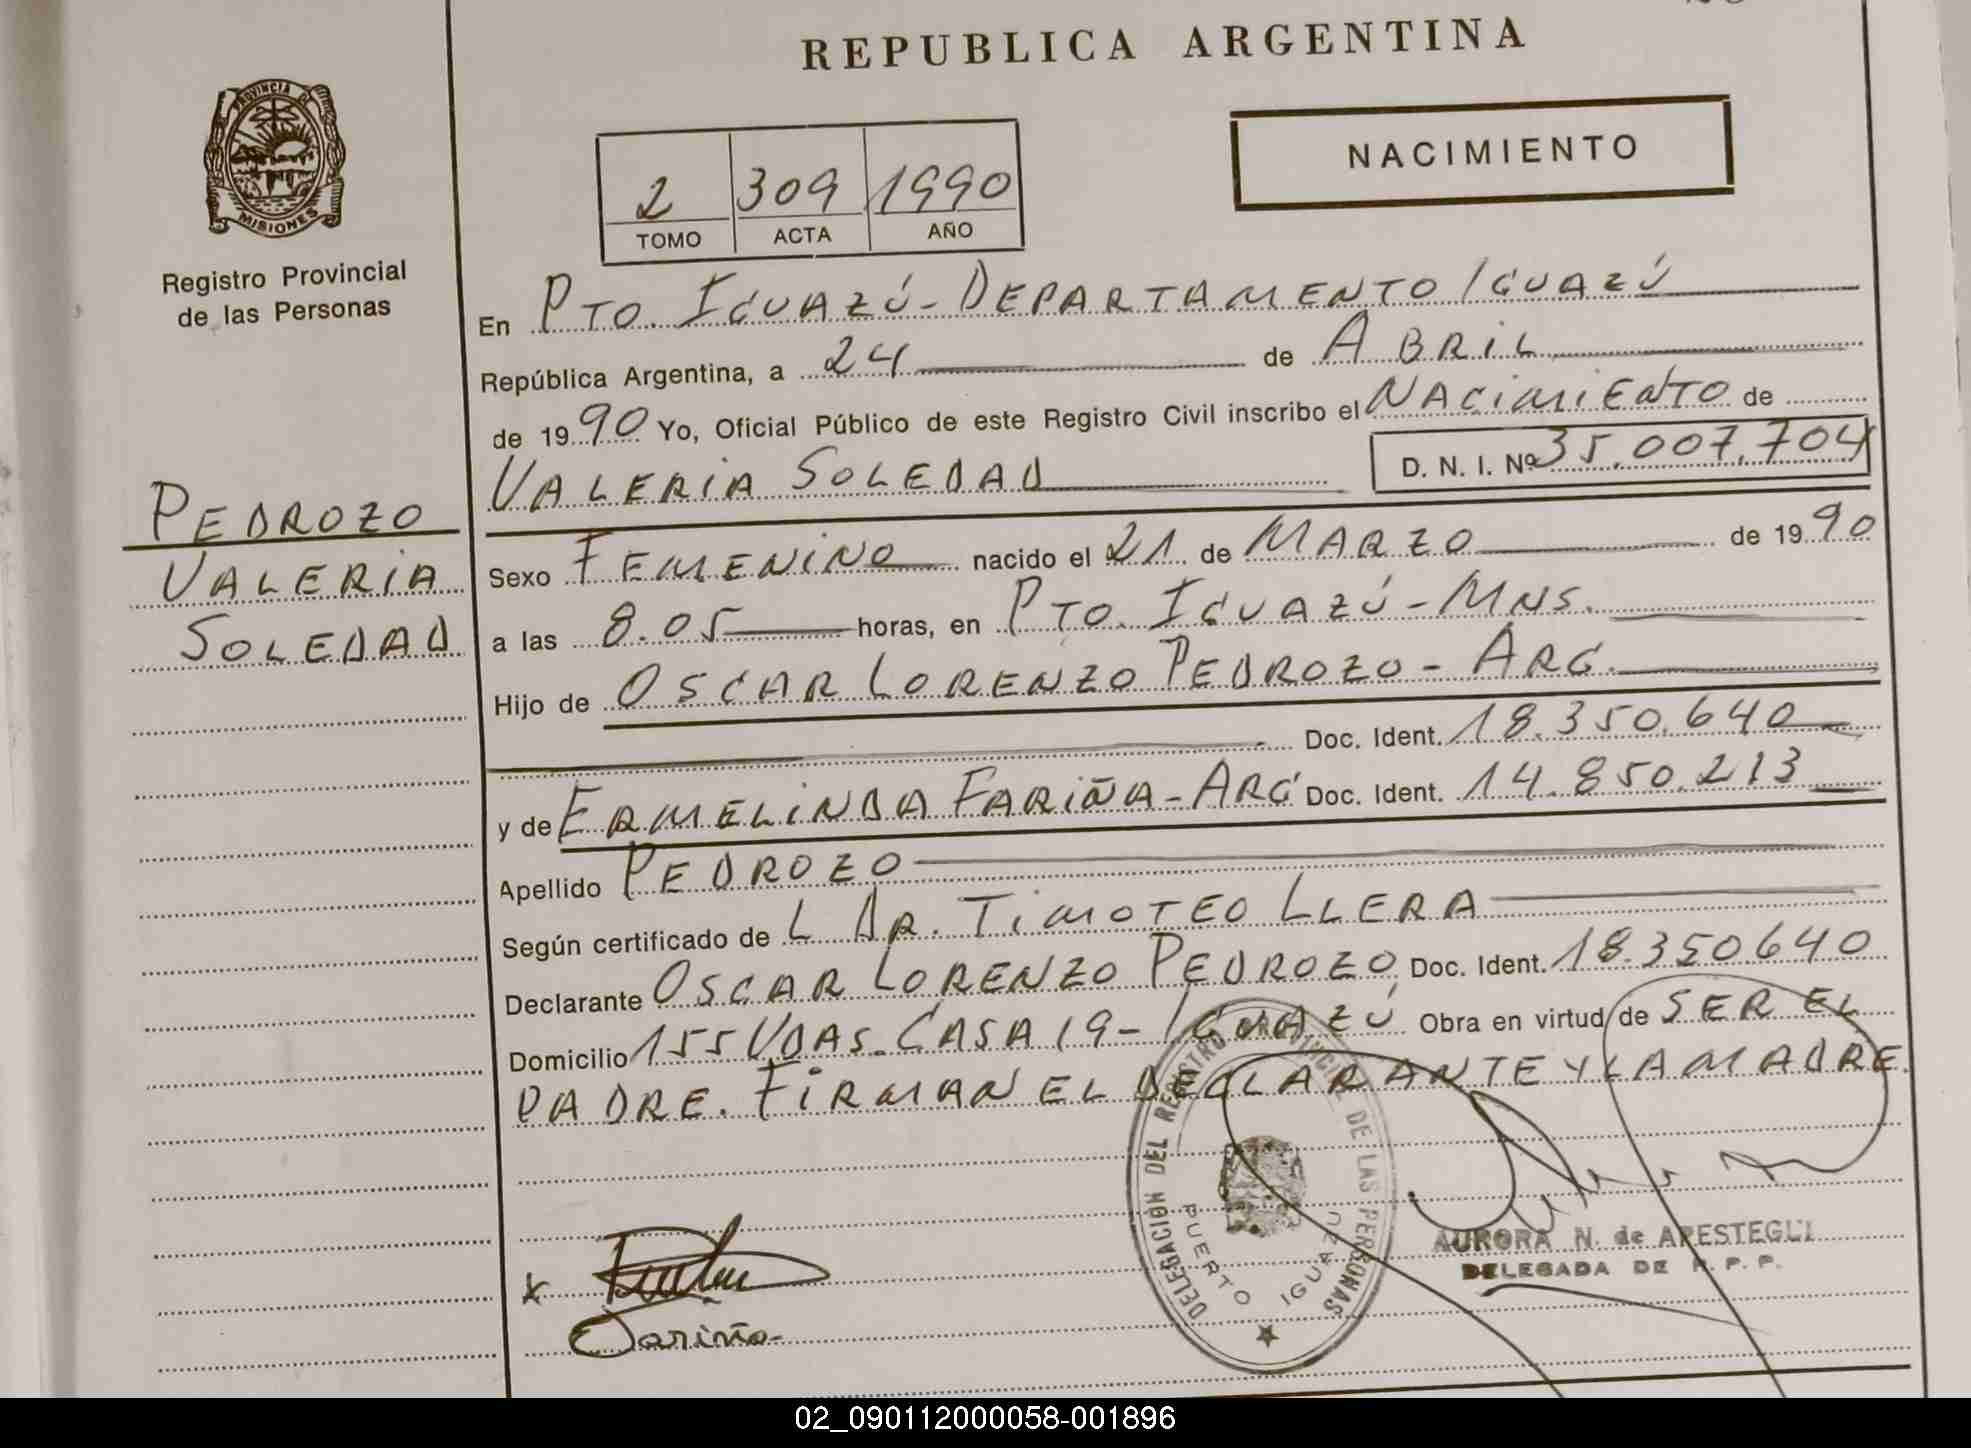 REPUBLICA ARGENTINA
PROVINCIA DE
MISIONES
Registro Provincial
de las Personas
NACIMIENTO
2 309 1990
TOMO ACTA AÑO
En PTO. IGUAZÚ - DEPARTAMENTO IGUAZÚ
República Argentina, a 24 de ABRIL
de 1990 Yo, Oficial Público de este Registro Civil inscribo el NACIMIENTO de
VALERIA SOLEDAD D. N. I. Nº 35.007.704
PEDROZO
VALERIA
SOLEDAD
Sexo FEMENINO nacido el 21 de MARZO de 1990
a las 8.05 horas, en PTO. IGUAZÚ - MNS.
Hijo de OSCAR LORENZO PEDROZO - ARG.
Doc. Ident. 18.350.640
y de ERMELINDA FARIÑA - ARG Doc. Ident. 14.850.213
Apellido PEDROZO
Según certificado de L DR. TIMOTEO LLERA
Declarante OSCAR LORENZO PEDROZO Doc. Ident. 18.350640
Domicilio 155 VDAS. CASA 19 - IGUAZÚ Obra en virtud de SER EL
PADRE. FIRMAN EL DECLARANTE Y LA MADRE.
DELEGACION DEL REGISTRO PROVINCIAL DE LAS PERSONAS
PUERTO IGUAZU
AURORA N. de APESTEGUI
DELEGADA DE R. P. P.
x
Fariña
02_090112000058-001896